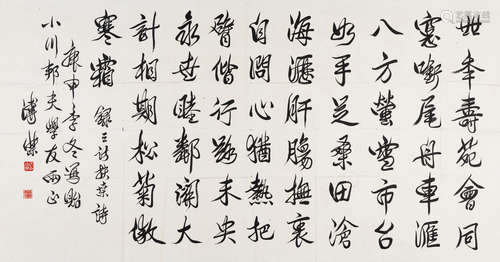 年壽苑會同
窓銜尾舟車滙
八方螢雪市台
如手足桑田滄
海瀝肝腸撫衷
自問心猶熱把
臂偕行路未央
永世睦鄰關大
計相期松菊傲
寒霜 錄三訪京詩
庚申季冬寫貽
小川邦夫學友正
溥傑